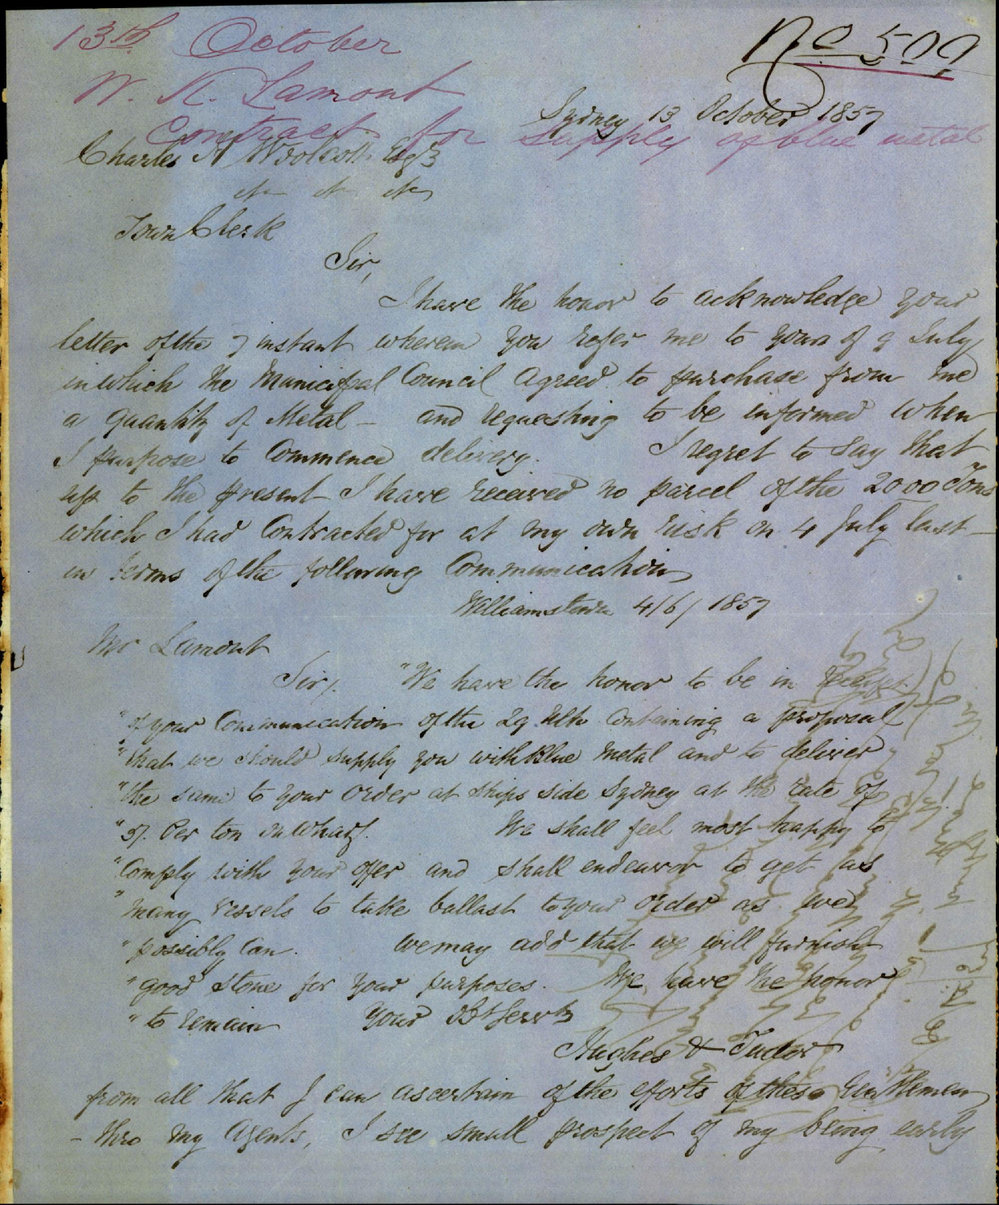 13th October
No 509
W. K. Lamont
Sydney 13 October 1857
Contract for Supply of blue metal
Charles H Woolcott Esqr
Town Clerk
Sir,
I have the honor to acknowledge your
letter of the 7 instant wherein you refer me to yours of 9 July
in which the Municipal Council agreed to purchase from me
a quantity of Metal - and requesting to be informed when
I purpose to Commence delivery. I regret to say that
up to the present I have received no parcel of the 2000 Tons
which I had Contracted for at my own risk on 4 July last -
in terms of the following Communication
Williamstown 4/6/1857
Mr Lamont
Sir/. "We have the honor to be in
"of your Communication of the 29 Ulto Containing a proposal
"that we should supply you with Blue metal and to deliver
"the same to your order at ships side Sydney at the rate of
" Per ton on Wharf. We shall feel most happy to
"Comply with your offer and shall endeavor to get as
"many vessels to take ballast to your order as we
"possibly Can. We may add that we will furnish
"good stone for your purposes. We have the honor
"to remain Your Obt Servts
Hughes & Tudor
from all that I can ascertain of the efforts of these Gentlemen
- thro my agents, I see small prospect of my being early